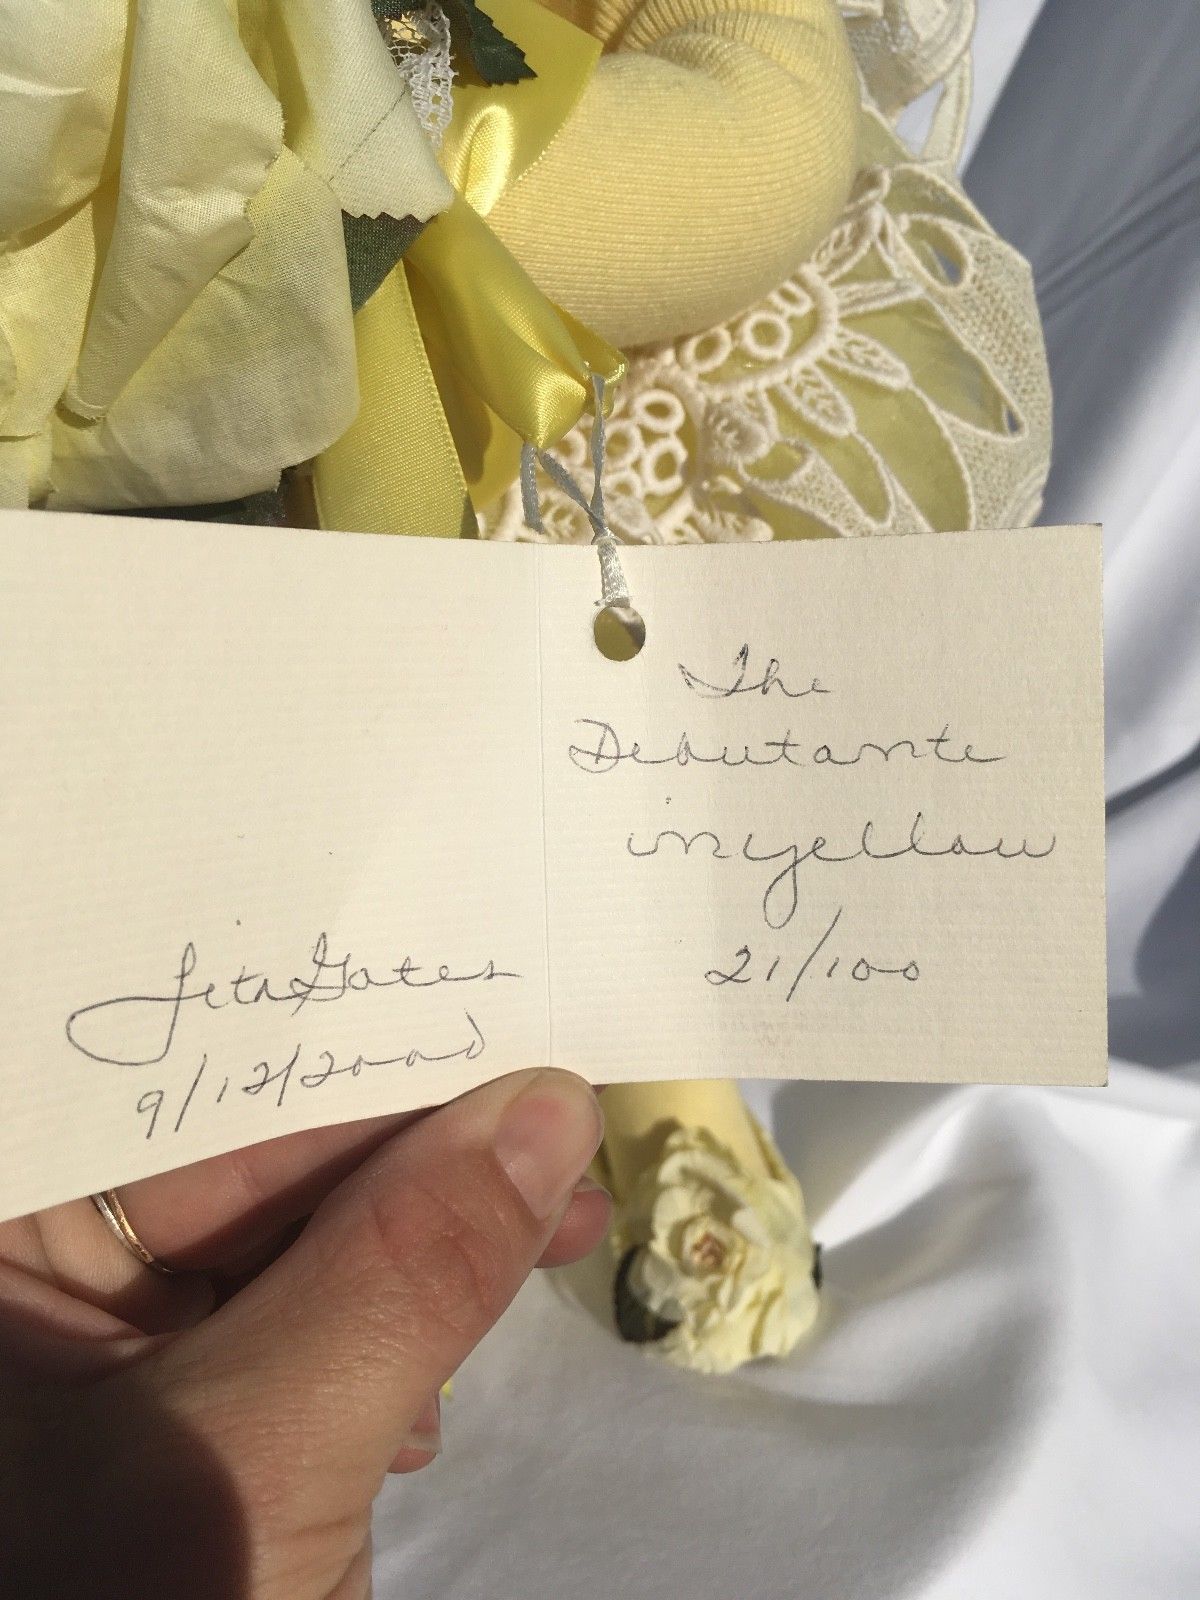 The
Debutante
in yellow
21/100
Leta Gates
9/12/2000